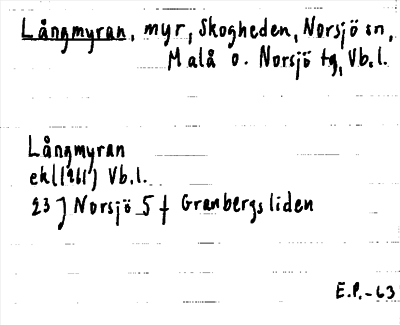 Långmyran, myr, Skogheden, Norsjö sn,
Malå o. Norsjö tg, Vb.l.
Långmyran
ekl(1961) Vb.l.
23 J Norsjö 5 f Granbergsliden
E.P.-63